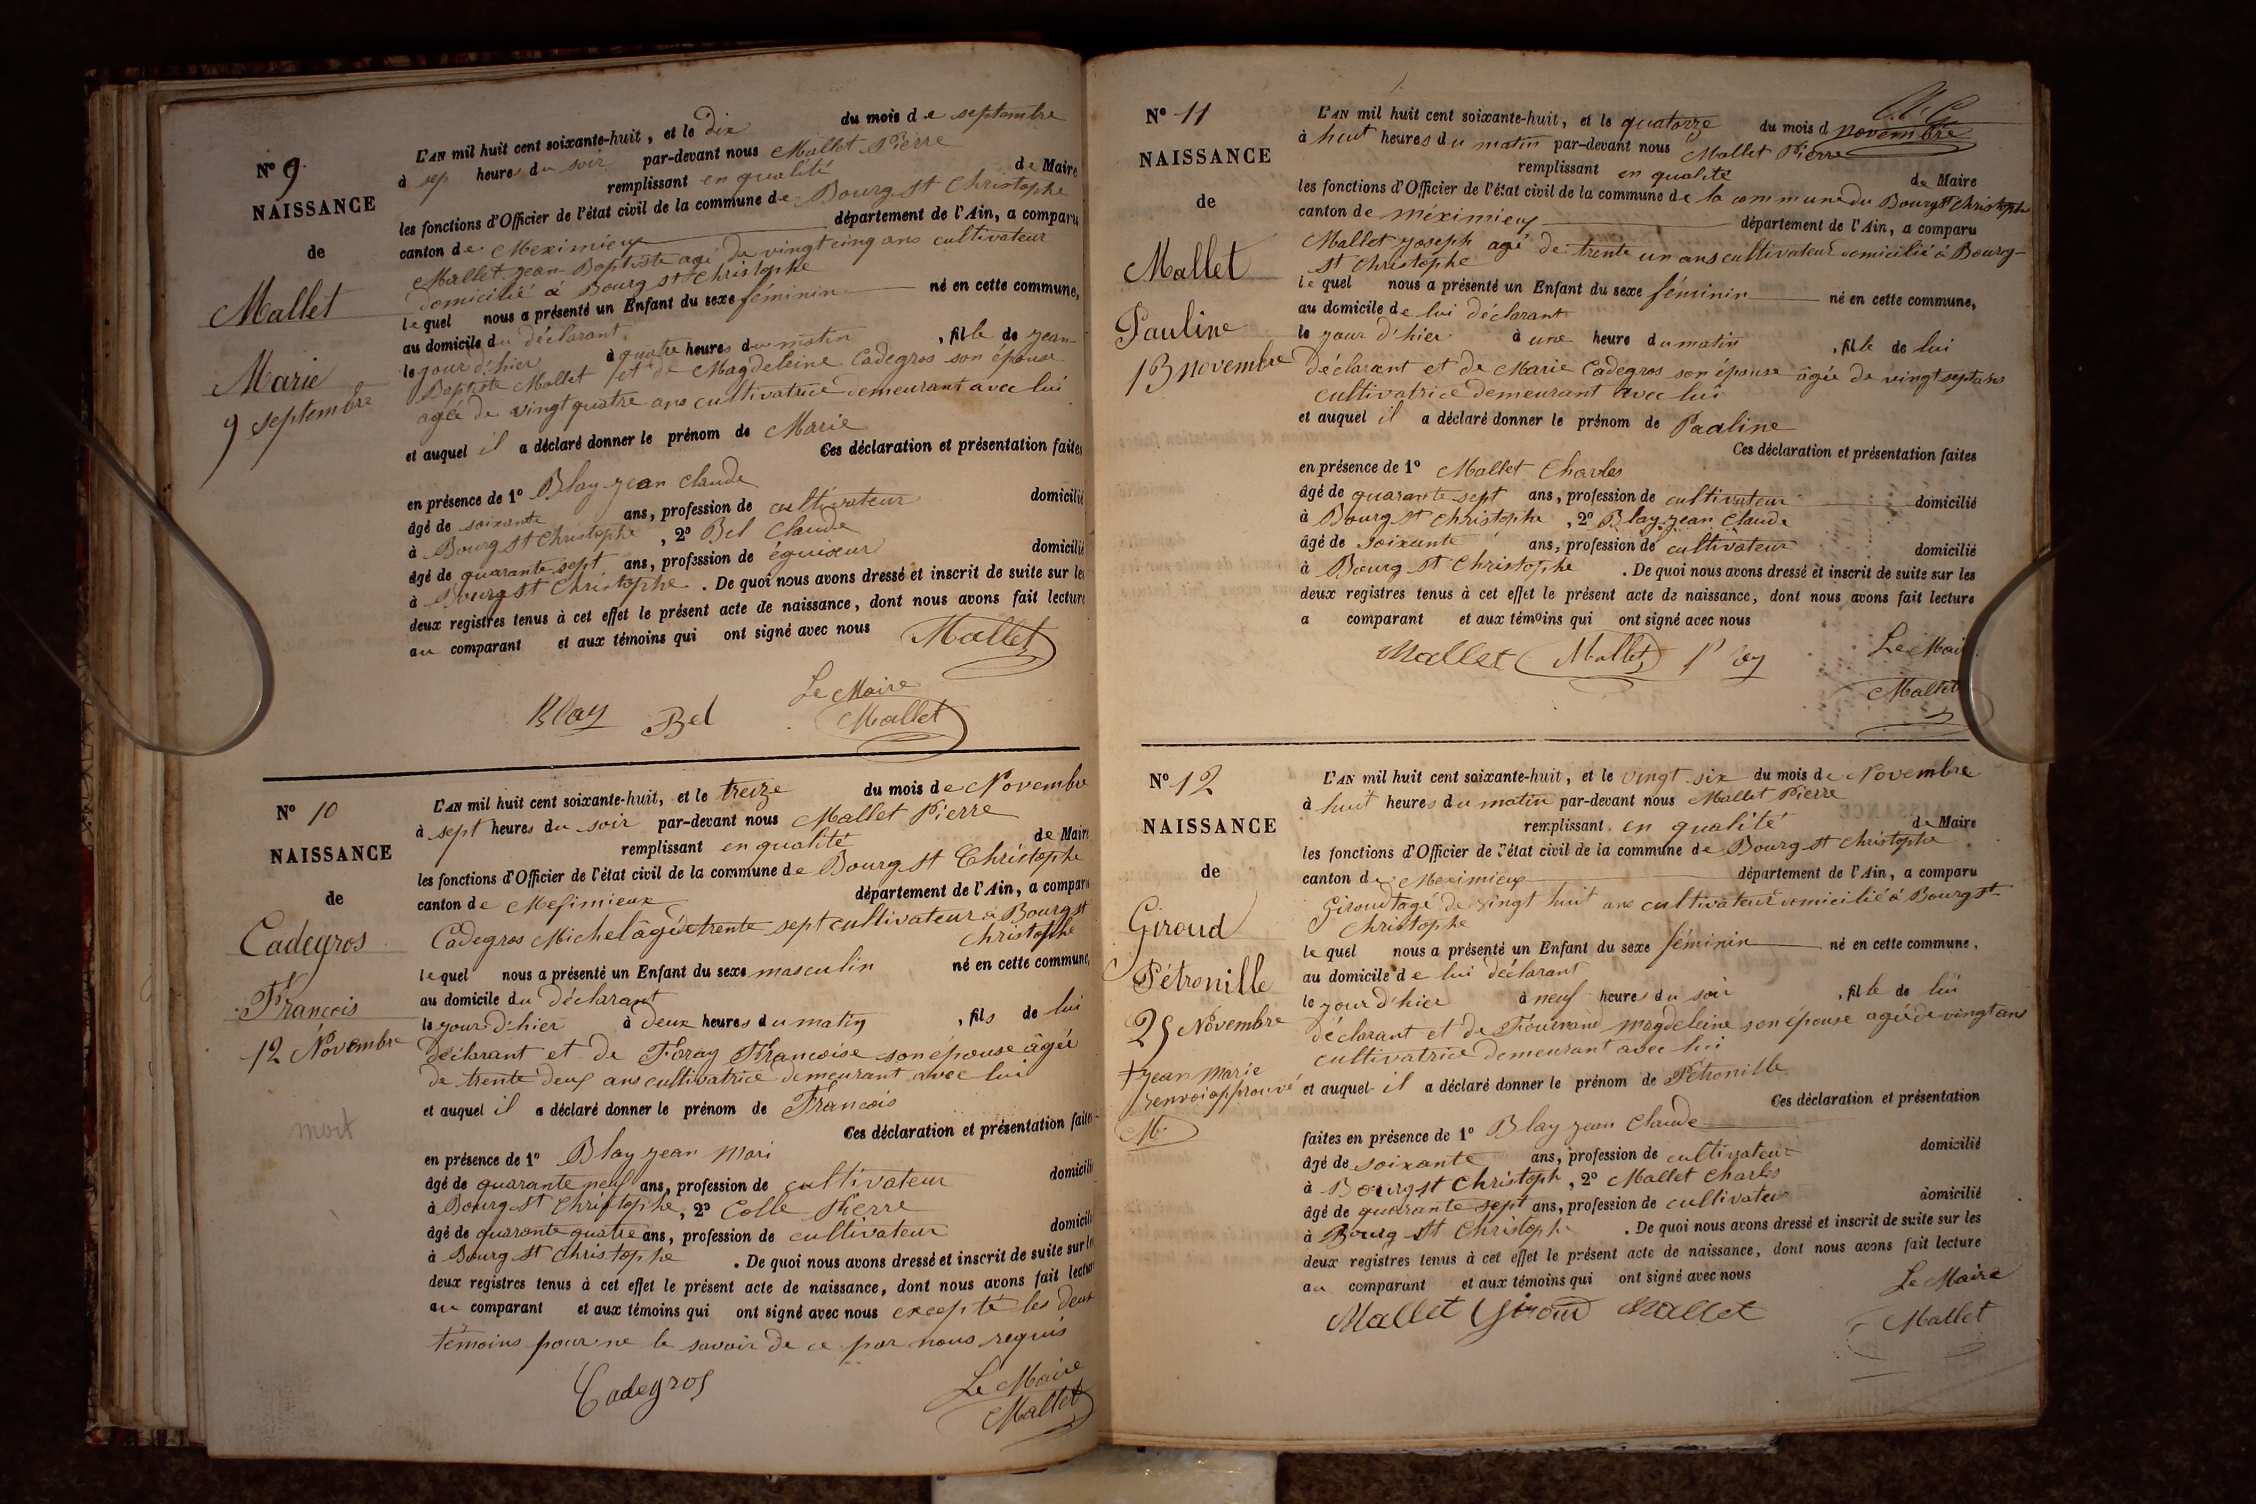 N° 9
NAISSANCE
de
Mallet
Marie
9 septembre
L'AN mil huit cent soixante-huit, et le dix du mois de septembre
à sep heures du soir par-devant nous Mallet Pierre
remplissant en qualité de Maire
les fonctions d'Officier de l'état civil de la commune de Bourg St Christophe
canton de Meximieux département de l'Ain, a comparu
Mallet jean Baptiste agé de vingt cinq ans cultivateur
domicilié à Bourg St Christophe
lequel nous a présenté un Enfant du sexe féminin né en cette commune,
au domicile du déclarant
le jour d'hier à quatre heures du matin, fille de jean
Baptiste Mallet et de Magdeleine Cadegros son épouse
agée de vingt quatre ans cultivatrice demeurant avec lui
et auquel il a déclaré donner le prénom de Marie
Ces déclaration et présentation faites
en présence de 1° Blay jean Claude
âgé de soixante ans, profession de cultivateur domicilié
à Bourg St Christophe, 2° Bel Claude
âgé de quarante sept ans, profession de domicilié
à Bourg St Christophe. De quoi nous avons dressé et inscrit de suite sur les
deux registres tenus à cet effet le présent acte de naissance, dont nous avons fait lecture
au comparant et aux témoins qui ont signé avec nous Mallet
Le Maire
Blay Bel Mallet
N° 10
NAISSANCE
de
Cadegros
François
12 Novembre
mort
L'AN mil huit cent soixante-huit, et le treize du mois de Novembre
à sept heures du soir par-devant nous Mallet Pierre
remplissant en qualité de Maire
les fonctions d'Officier de l'état civil de la commune de Bourg St Christophe
canton de Meximieux département de l'Ain, a comparu
Cadegros Michel âgé de trente sept cultivateur à Bourg St
Christophe
lequel nous a présenté un Enfant du sexe masculin né en cette commune,
au domicile du déclarant
le jour d'hier à deux heures du matin, fils de lui
déclarant et de Foray Françoise son épouse âgée
de trente deux ans cultivatrice demeurant avec lui
et auquel il a déclaré donner le prénom de François
Ces déclaration et présentation faites
en présence de 1° Blay jean Mari
âgé de quarante neuf ans, profession de cultivateur domicilié
à Bourg St Christophe, 2° Colle Pierre
âgé de quarante quatre ans, profession de cultivateur domicilié
à Bourg St Christophe. De quoi nous avons dressé et inscrit de suite sur les
deux registres tenus à cet effet le présent acte de naissance, dont nous avons fait lecture
au comparant et aux témoins qui ont signé avec nous excepté les deux
témoins pour ne le savoir de ce par nous requis
Le Maire
Cadegros Mallet
N° 11
NAISSANCE
de
Mallet
Pauline
13 novembre
L'AN mil huit cent soixante-huit, et le quatorze du mois d novembre
à huit heures du matin par-devant nous Mallet Pierre
remplissant en qualité de Maire
les fonctions d'Officier de l'état civil de la commune de la commune du Bourg St Christophe
canton de méximieux département de l'Ain, a comparu
Mallet joseph agé de trente un ans cultivateur domicilié à Bourg-
St Christophe
lequel nous a présenté un Enfant du sexe féminin né en cette commune,
au domicile de lui déclarant
le jour d'hier à une heure du matin, fille de lui
déclarant et de Marie Cadegros son épouse âgée de vingt sept ans
cultivatrice demeurant avec lui
et auquel il a déclaré donner le prénom de Paaline
Ces déclaration et présentation faites
en présence de 1° Mallet Charles
âgé de quarante sept ans, profession de cultivateur domicilié
à Bourg St Christophe, 2° Blay jean Claude
âgé de soixante ans, profession de cultivateur domicilié
à Bourg St Christophe. De quoi nous avons dressé et inscrit de suite sur les
deux registres tenus à cet effet le présent acte de naissance, dont nous avons fait lecture
a comparant et aux témoins qui ont signé avec nous
Le Mai
Mallet Mallet
Mallet
N° 12
NAISSANCE
de
Giroud
Pétronille
25 Novembre
† jean Marie
renvoi approuvé
M
L'AN mil huit cent soixante-huit, et le vingt six du mois de Novembre
à huit heures du matin par-devant nous Mallet Pierre
remplissant en qualité de Maire
les fonctions d'Officier de l'état civil de la commune de Bourg St Christophe
canton de Meximieux département de l'Ain, a comparu
Giroud † agé de vingt huit ans cultivateur domicilié à Bourg St
Christophe
lequel nous a présenté un Enfant du sexe féminin né en cette commune.
au domicile de lui déclarant
le jour d'hier à neuf heures du soir, fille de lui
déclarant et de magdeleine son épouse agée de vingt ans
cultivatrice demeurant avec lui
et auquel il a déclaré donner le prénom de Pétronille
Ces déclaration et présentation
faites en présence de 1° Blay jean Claude
âgé de soixante ans, profession de cultivateur domicilié
à Bourg St Christoph, 2° Mallet Charles
âgé de quarante sept ans, profession de cultivateur domicilié
à Bourg St Christoph. De quoi nous avons dressé et inscrit de suite sur les
deux registres tenus à cet effet le présent acte de naissance, dont nous avons fait lecture
au comparant et aux témoins qui ont signé avec nous
Le Maire
Mallet Giroud Mallet
Mallet